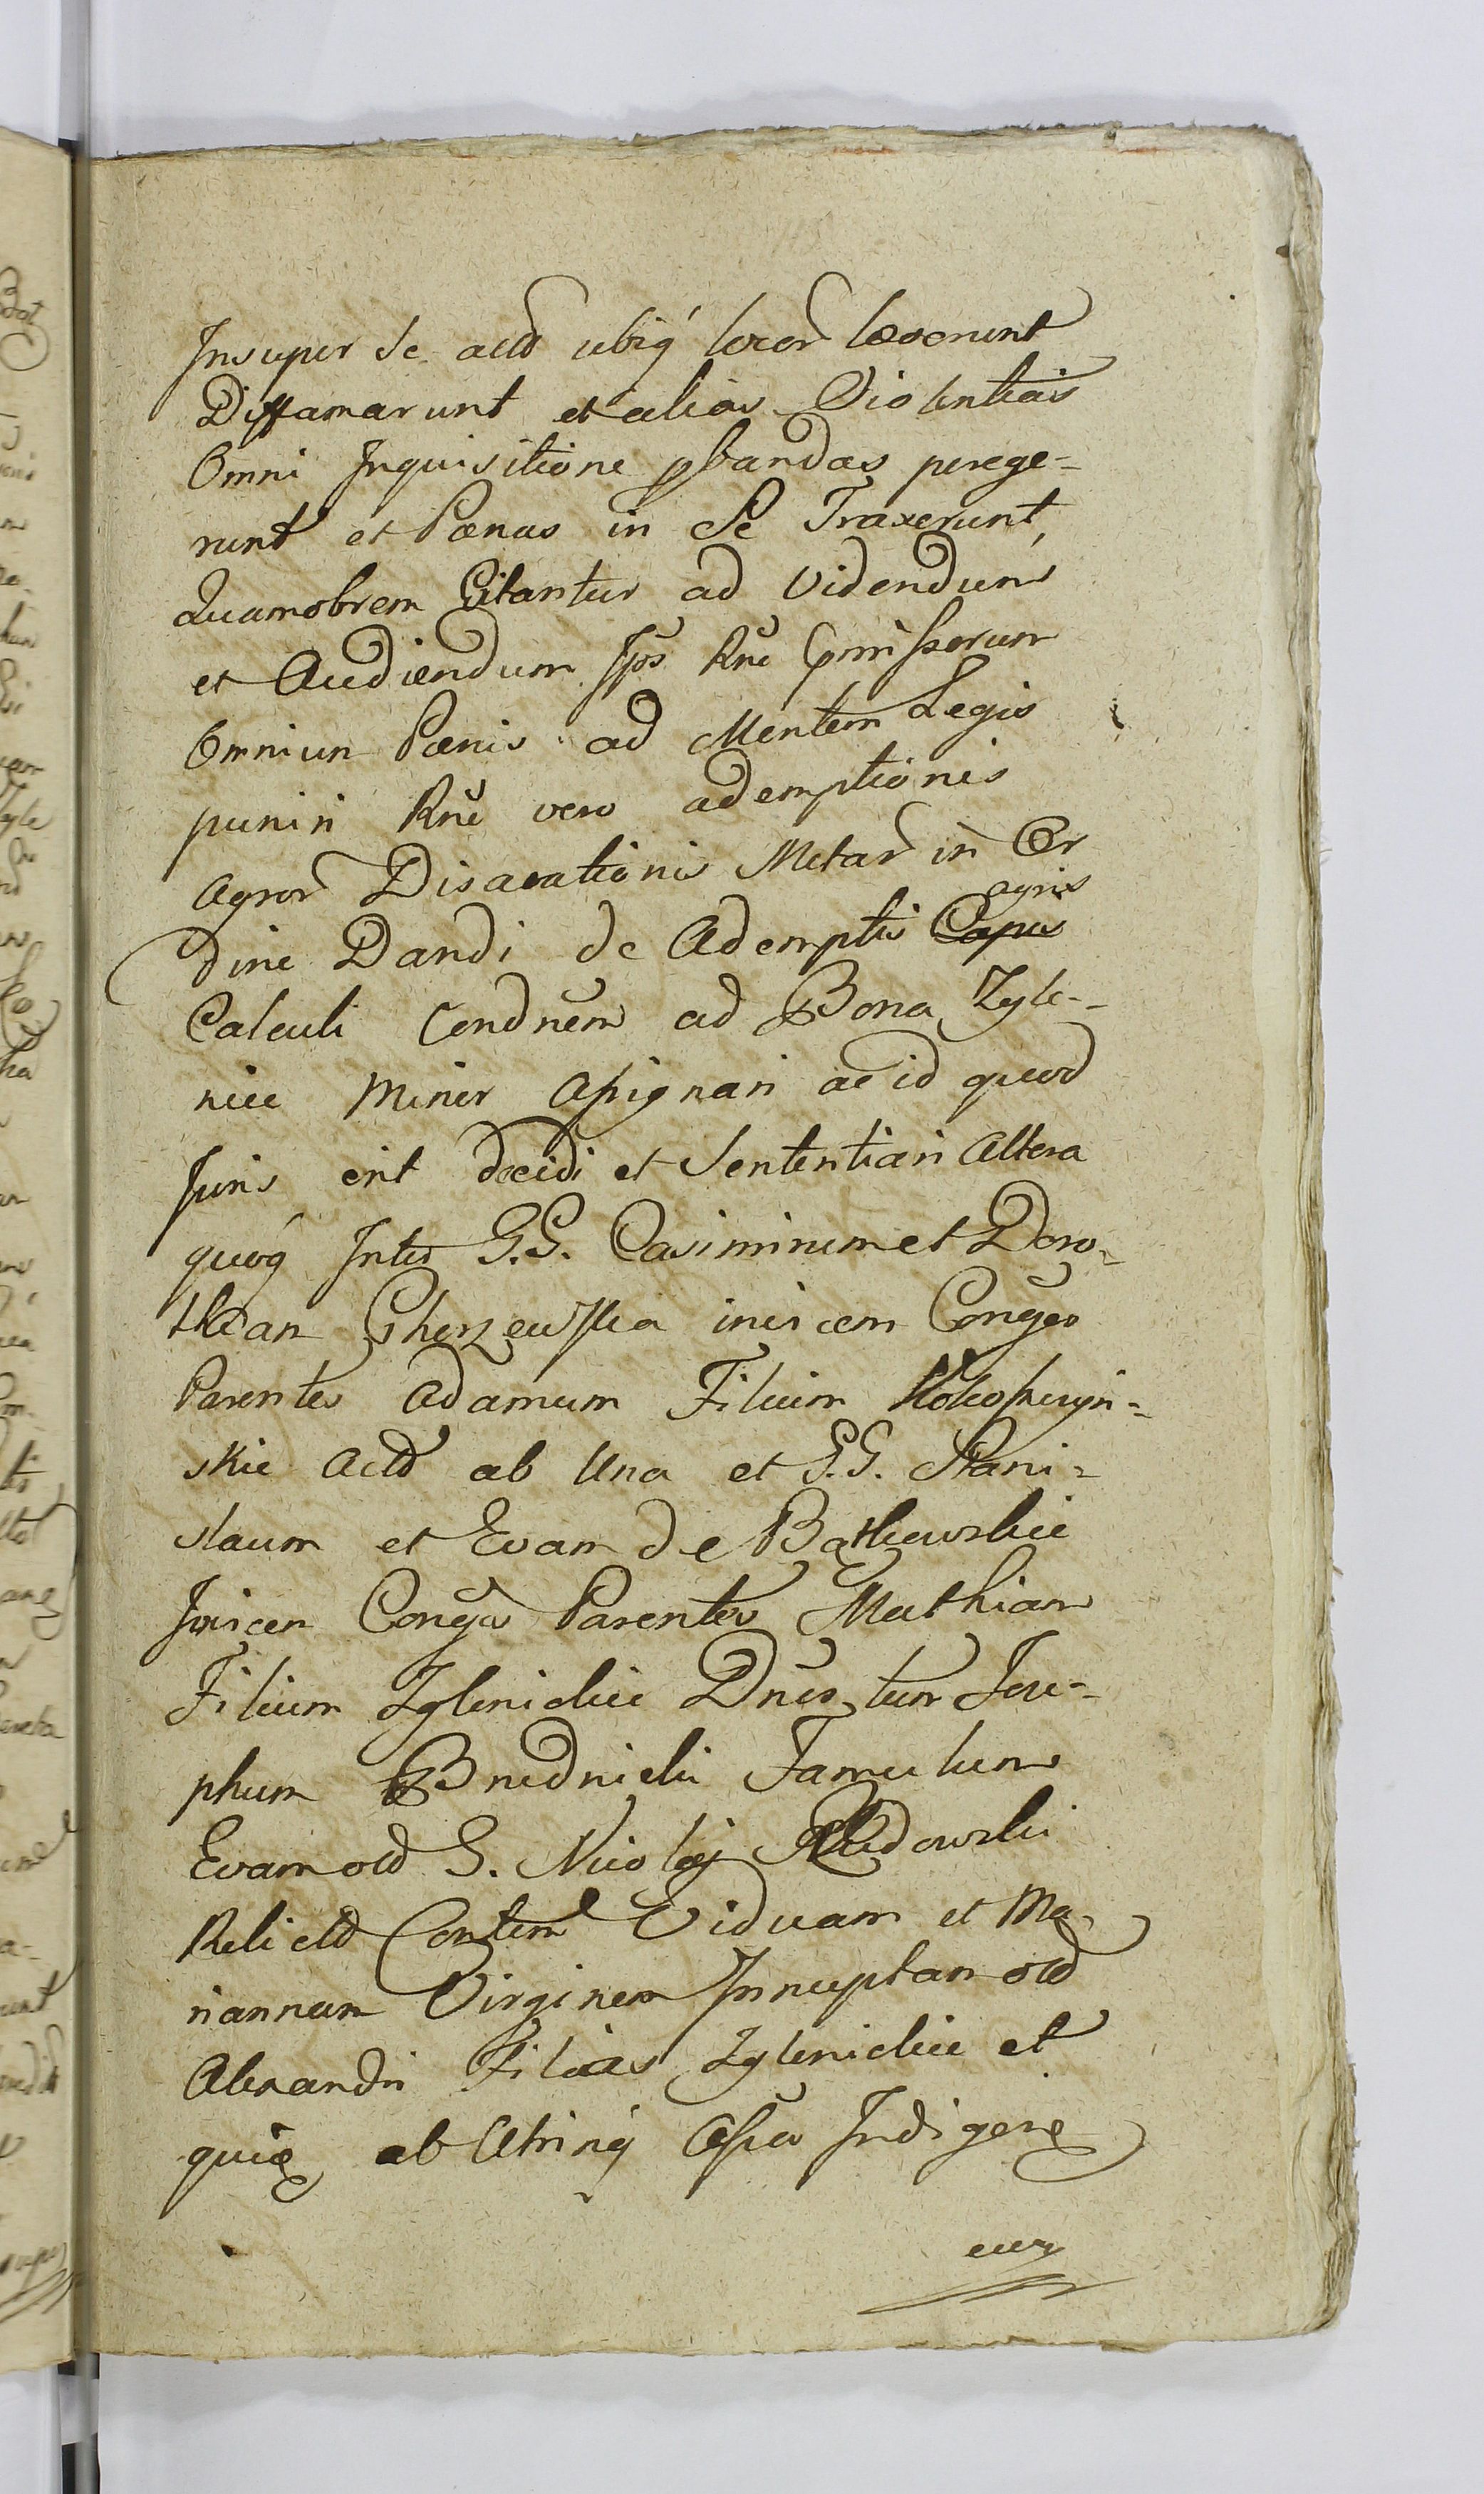 Insuper Se actd ubiq́ locor̃ læserunt
Diffamarunt et alias Violentias
Omni Inquisitione pbandas perege-
runt et Pœnas in Se Traxerunt,
Quamobrem Citantur ad Videndum
et Audiendum Ips Rñe Cõmissorum
Omnium Pœnis ad Mentem Legis
puniri Rñe vero ademptionis
Agror̃ Disarationis Metar̃ in Or
dine Dandi de Ademptis agris
Calculi Condñem ad Bona Zgle-
nice Minor Assignari ac id quod
Juris erit decidi et Sententiari Altera
quoq́ Inter G.G. Casimirum et Doro-
theam invicem Conges
Parentes Adamum Filium
skie Actd ab Una et G.G. Stani-
slaum et Evam de
Invicem Conges Parentes Mathiam
Filium Zglenickie Dnes, tum Jose-
phum Brudnicki Famulum
Evam old G. Nicolaj
Relictd Contem Viduam et Ma-
riannam Virginem Innuptam old
Alexandri Filias Zglenickie et
quia ab Utrinq́ Assa Indigene